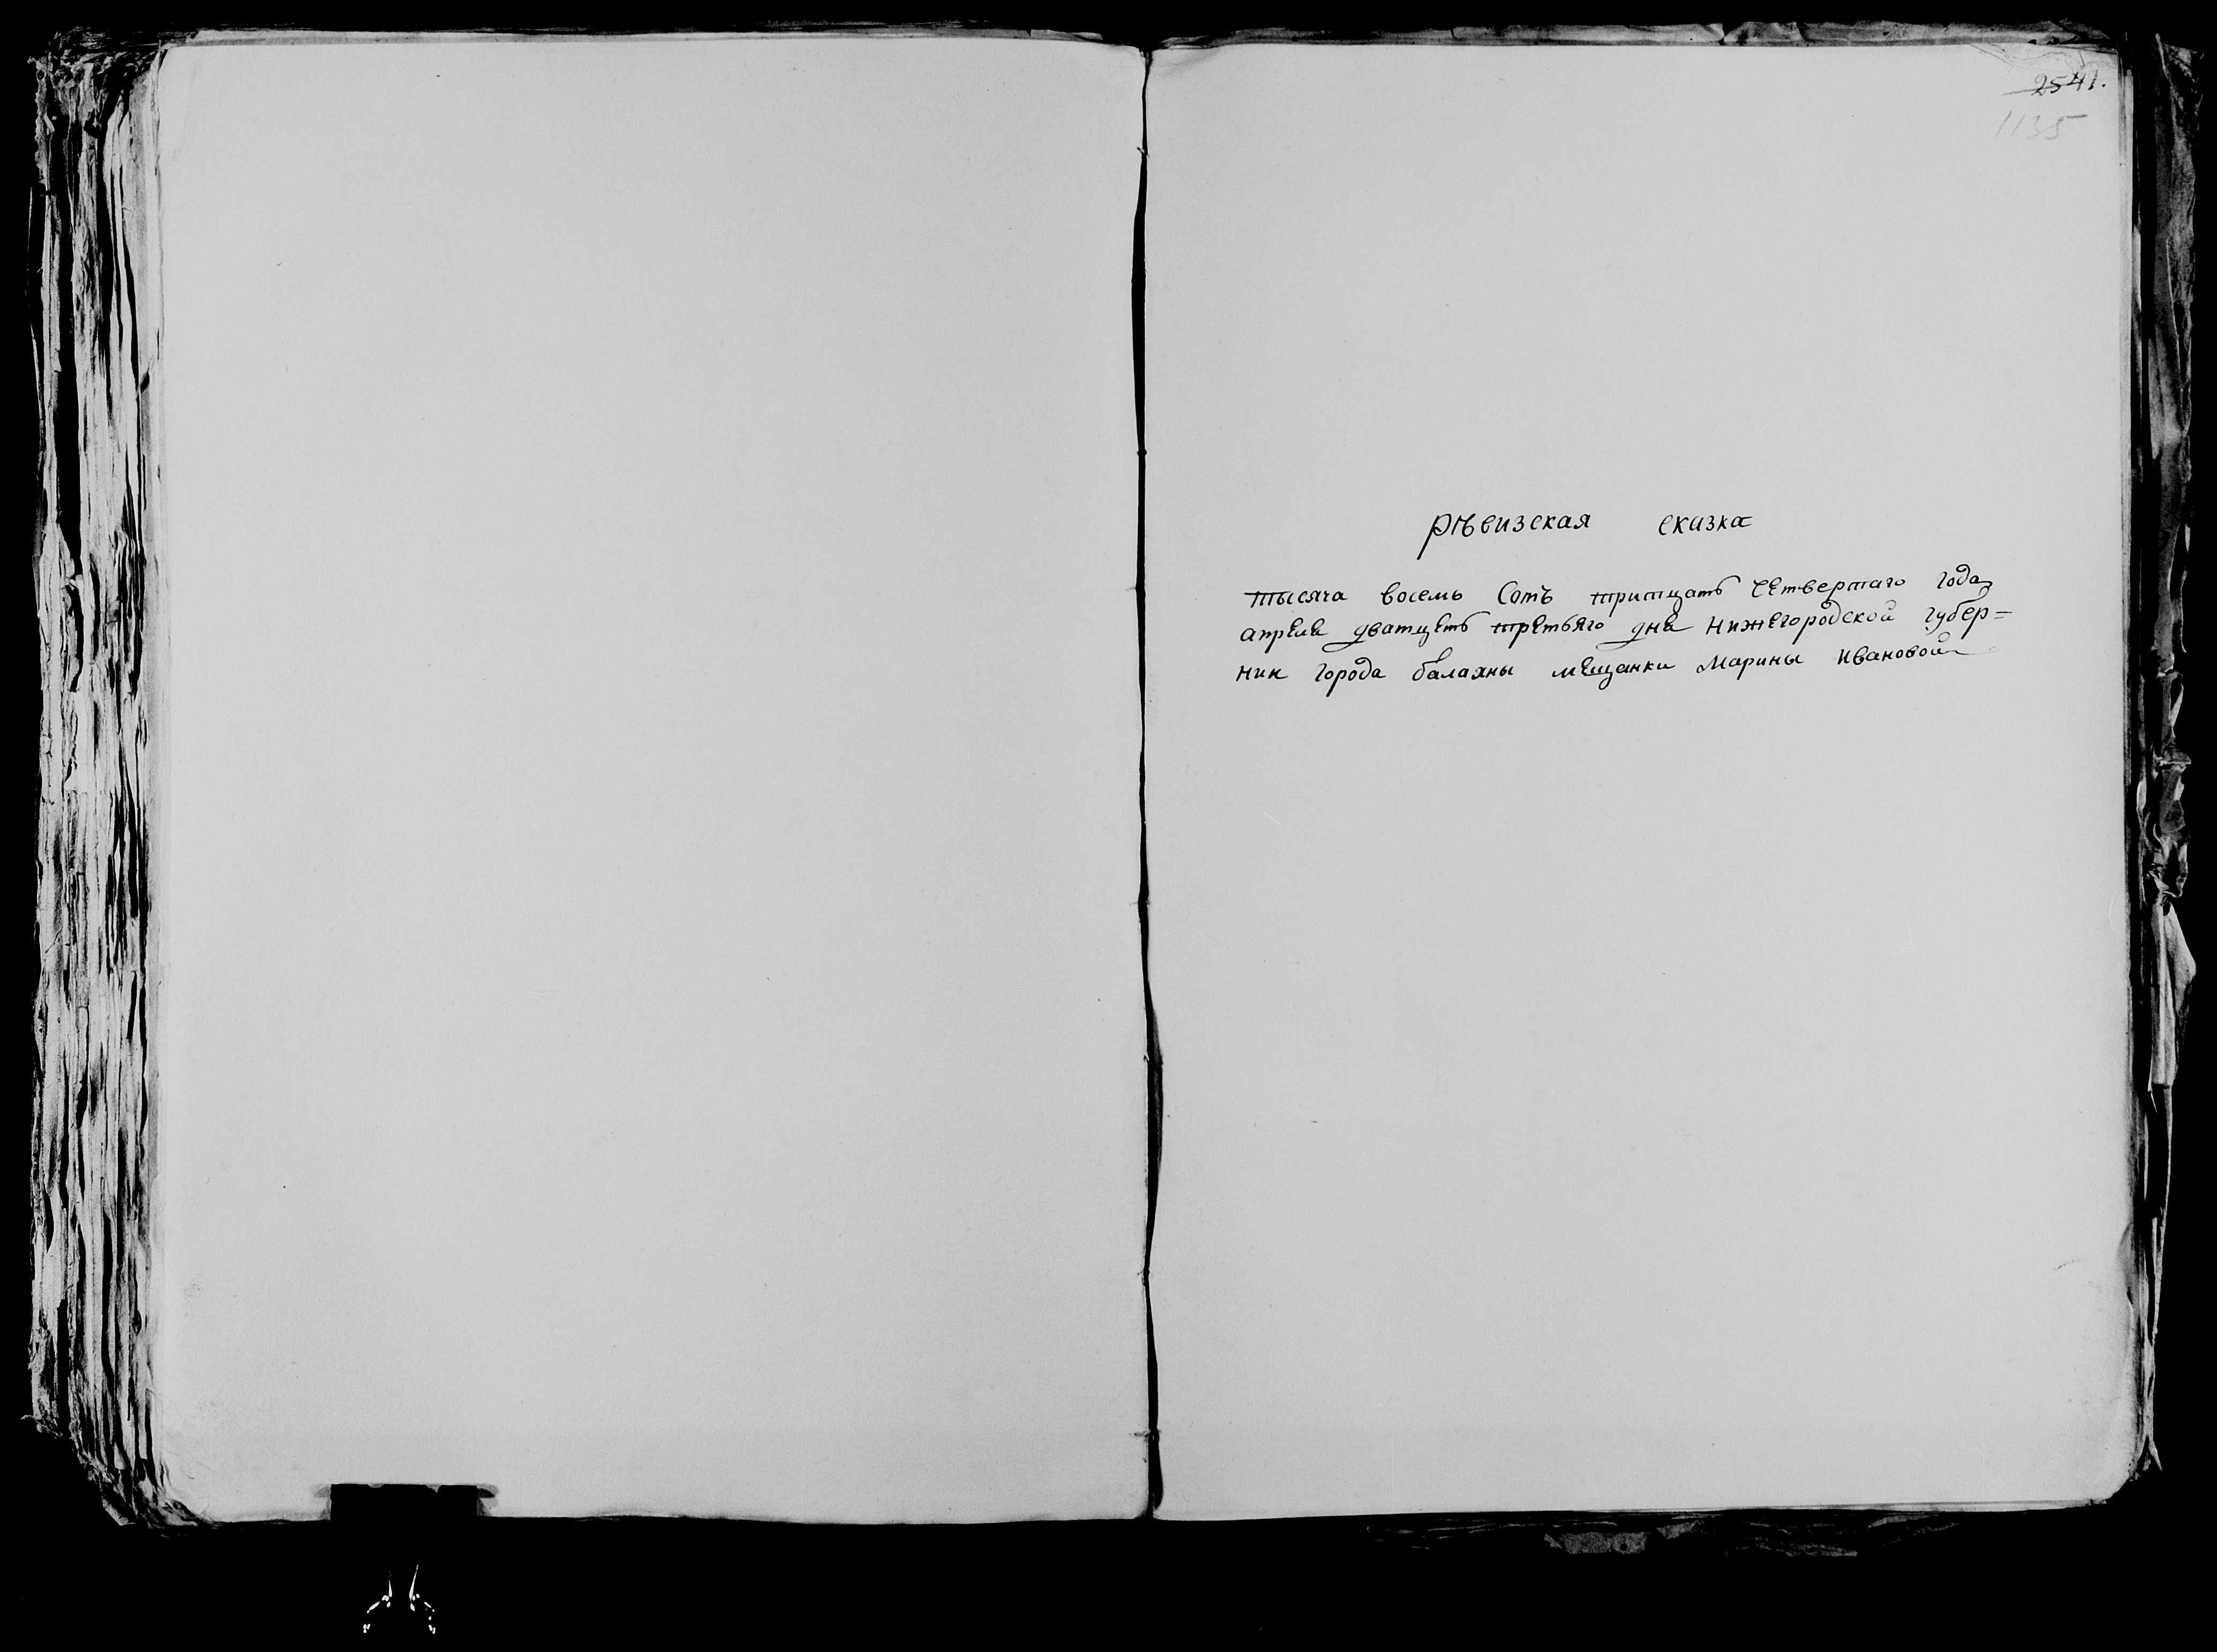 2541.
1135
рѣвизская сказка
тысяча восемь Сотъ тритцать четвертаго года
апреля дватцеть третьяго дня нижегородской губер=
нии города балахны мещанки Марины ивановой